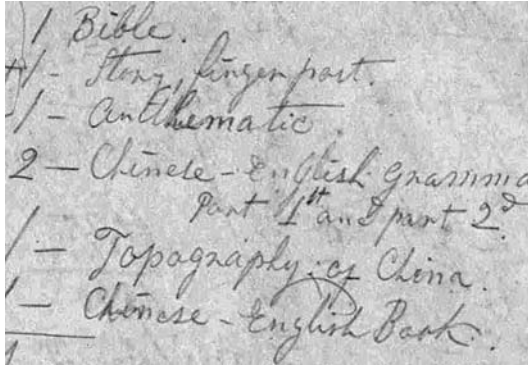 1 Bible.
1 - Story, finger post.
1 - Arithematic.
2 - Chinese - English gramma
Part 1st and part 2d.
1 - Topography of China.
1 - Chinese - English Book.
1